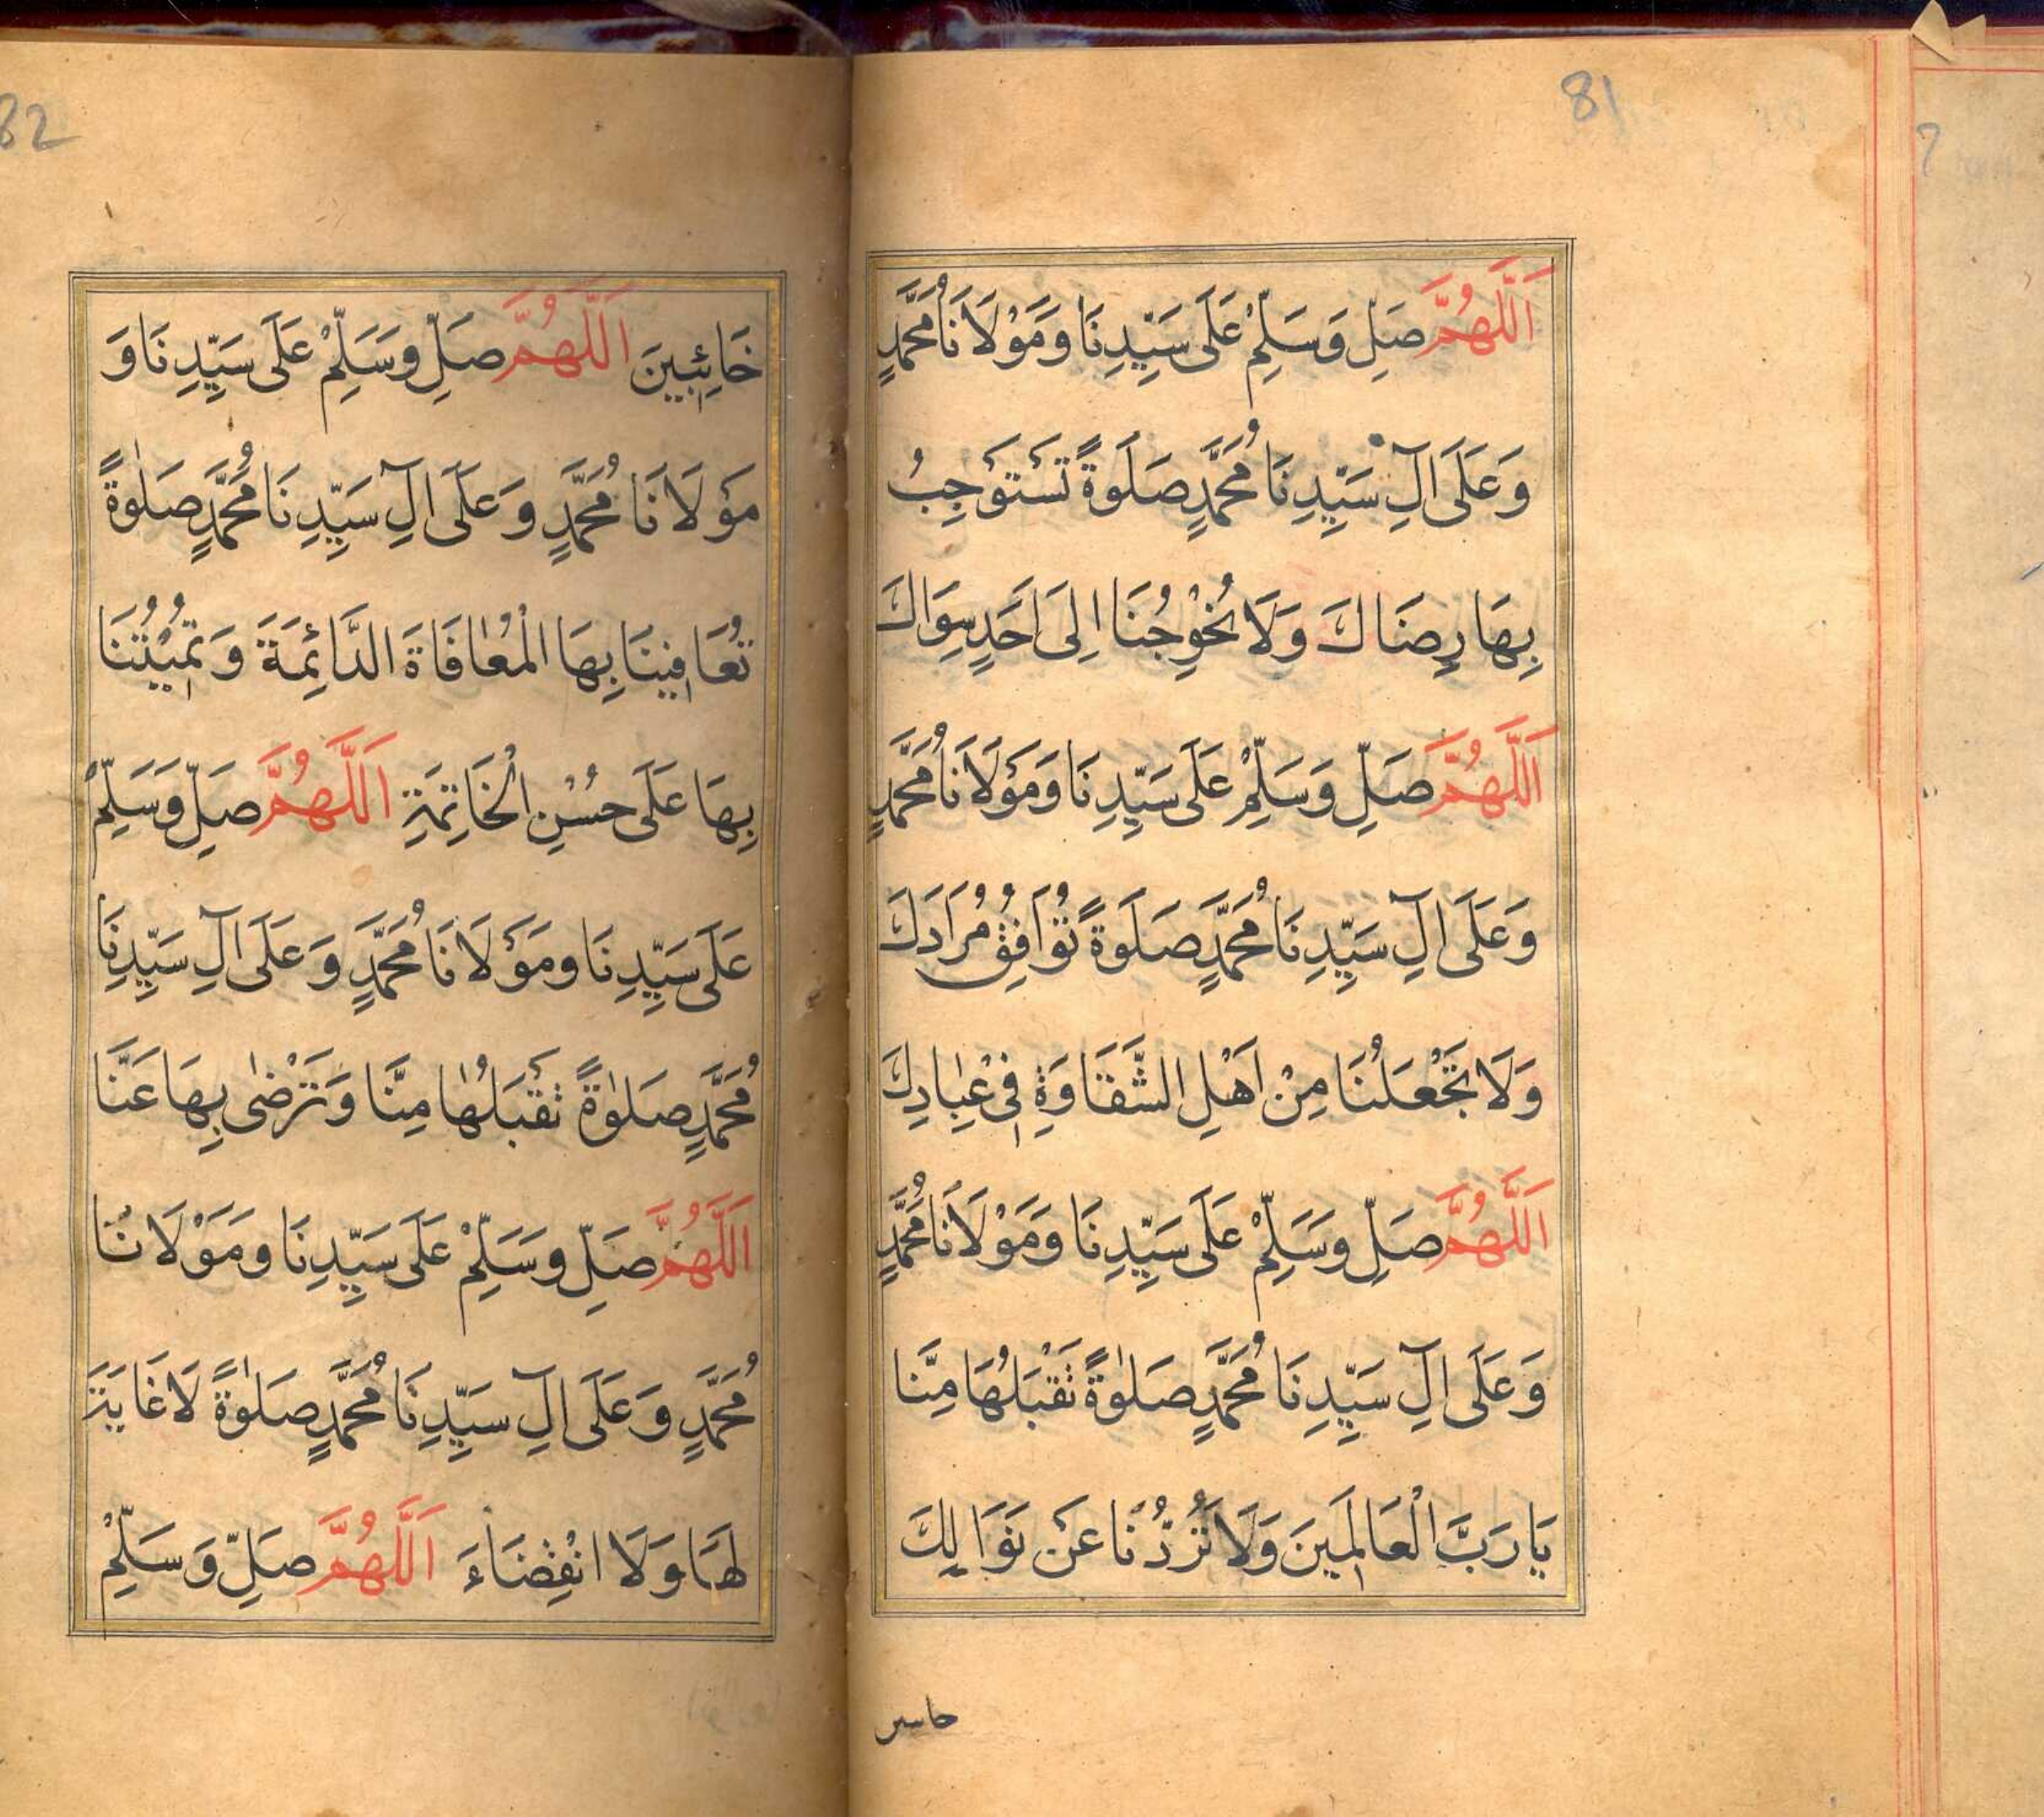 81
اَللّٰهُمَّ صَلِّ وَسَلِّمْ عَلَى سَيِّدِنَا وَمَوْلَانَا مُحَمَّدٍ
وَعَلَى اٰلِ سَيِّدِنَا مُحَمَّدٍ صَلَوةً تَسْتَوْجِبُ
بِهَا رِضَاكَ وَلَا تُحْوِجُنَا اِلَى اَحَدٍ سِوَاكَ
اَللّٰهُمَّ صَلِّ وَسَلِّمْ عَلَى سَيِّدِنَا وَمَوْلَانَا مُحَمَّدٍ
وَعَلَى اٰلِ سَيِّدِنَا مُحَمَّدٍ صَلَوةً تُوَافِقُ مُرَادَكَ
وَلَا تَجْعَلُنَا مِنْ اَهْلِ الشَّقَاوَةِ فِى عِبَادِكَ
اَللّٰهُمَّ صَلِّ وَسَلِّمْ عَلَى سَيِّدِنَا وَمَوْلَانَا مُحَمَّدٍ
وَعَلَى اٰلِ سَيِّدِنَا مُحَمَّدٍ صَلٰوةً تَقْبَلُهَا مِنَّا
يَا رَبَّ الْعَالَمِينَ وَلَا تَرُدُّنَا عَنْ نَوَالِكَ
82
خَائِبِينَ اَللّٰهُمَّ صَلِّ وَسَلِّمْ عَلَى سَيِّدِنَا وَ
مَوْلَانَا مُحَمَّدٍ وَعَلَى اٰلِ سَيِّدِنَا مُحَمَّدٍ صَلٰوةً
تُعَافِينَا بِهَا الْمُعَافَاةَ الدَّائِمَةَ وَتُمِيْتُنَا
بِهَا عَلَى حُسْنِ الْخَاتِمَةِ اَللّٰهُمَّ صَلِّ وَسَلِّمْ
عَلَى سَيِّدِنَا وَمَوْلَانَا مُحَمَّدٍ وَعَلَى اٰلِ سَيِّدِنَا
مُحَمَّدٍ صَلٰوةً تَقْبَلُهَا مِنَّا وَتَرْضٰى بِهَا عَنَّا
اَللّٰهُمَّ صَلِّ وَسَلِّمْ عَلَى سَيِّدِنَا وَمَوْلَانَا
مُحَمَّدٍ وَعَلَى اٰلِ سَيِّدِنَا مُحَمَّدٍ صَلٰوةً لَا غَايَةَ
لَهَا وَلَا انْقِضَاءَ اَللّٰهُمَّ صَلِّ وَسَلِّمْ